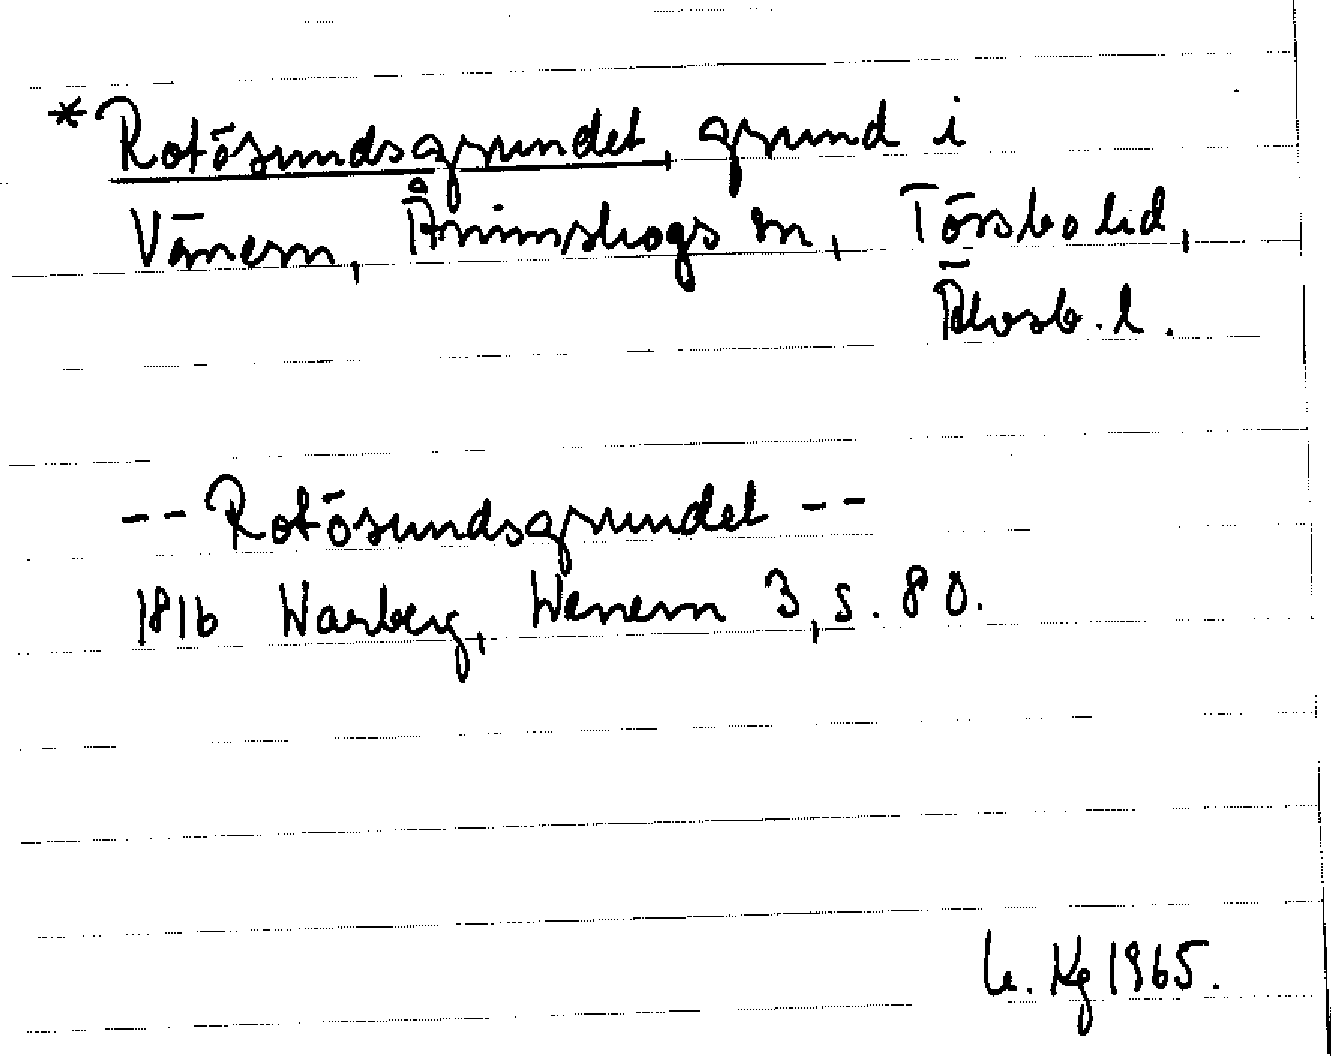 * Rotösundsgrundet, grund i
Vänern, Ånimskogs sn, Tössbo hd,
Älvsb. l.
-- Rotösundsgrundet --
1816 Warberg, Wenern 3, s. 80.
Kg 1965.